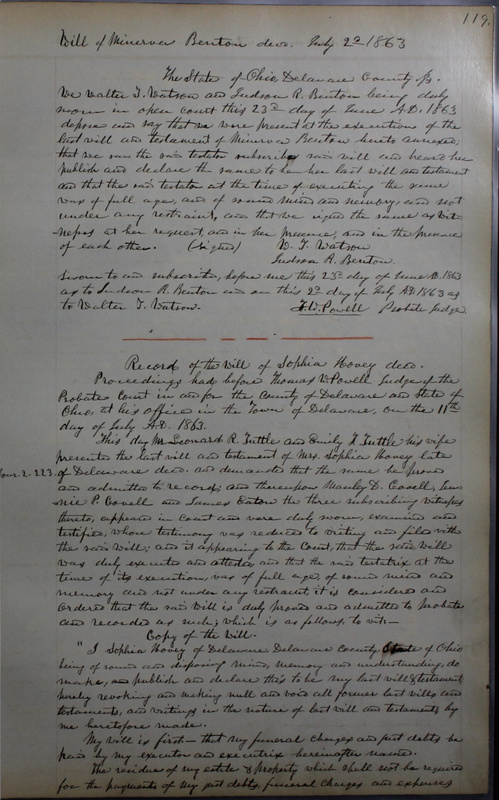 119.
Will of Minerva Benton decd. July 2d 1863
The State of Ohio Delaware County ss.
We Walter T. Watson and Judson R. Benton being duly
sworn in open court this 23d day of June A.D. 1863
depose and say that we were present at the execution of the
last will and testament of Minerva Benton hereto annexed;
that we saw the said testator subscribe said will and heard her
publish and declare the same to be her last will and testament
and that the said testator at the time of executing the same
was of full age, and of sound mind and memory, and not
under any restraint, and that we signed the same as Wit-
nesses at her request, and in her presence, and in the presence
of each other. (Signed) W. T. Watson
Judson R. Benton.
Sworn to and subscribed, before me this 23d day of June AD. 1863
as to Judson R. Benton and on this 2d day of July A.D 1863 as
to Walter T. Watson. T. W. Powell Probate Judge.
Record of the Will of Sophia Hovey decd.
Proceedings had before Thomas W. Powell Judge of the
Probate Court in and for the County of Delaware and State of
Ohio, at his office in the Town of Delaware, on the 11th
day of July A.D. 1863.
This day Mr Leonard R. Tuttle and Emily H Tuttle his wife
presents the last will and testament of Mrs. Sophia Hovey late
2-223. of Delaware decd. and demanded that the same be proved
and admitted to record; and thereupon Manly D. Covell, Jen-
nie P. Covell and James Eaton the three subscribing witnesses
thereto, appeared in Court and were duly sworn, examined and
testified; whose testimony was reduced to writing and filed with
the said Will; and it appearing to the Court, that the said Will
was duly executed and attested and that the said testatrix at the
time of its execution, was of full age, of sound mind and
memory and not under any restraint, it is considered and
ordered that the said Will is duly proved and admitted to probate
and recorded as such; which is as follows, to wit—
Copy of the Will.
"I Sophia Hovey of Delaware Delaware County, State of Ohio
being of sound and disposing mind, memory and understanding, do
make, and publish and declare this to be my last will & testament
hereby revoking and making null and void all former last wills and
testaments, and writings in the nature of last will and testaments by
me heretofore made.
My will is first— that my funeral charges and just debts be
paid by my executor and executrix hereinafter named.
The residue of my estate & property which shall not be required
for the payments of my just debts, funeral charges and expenses